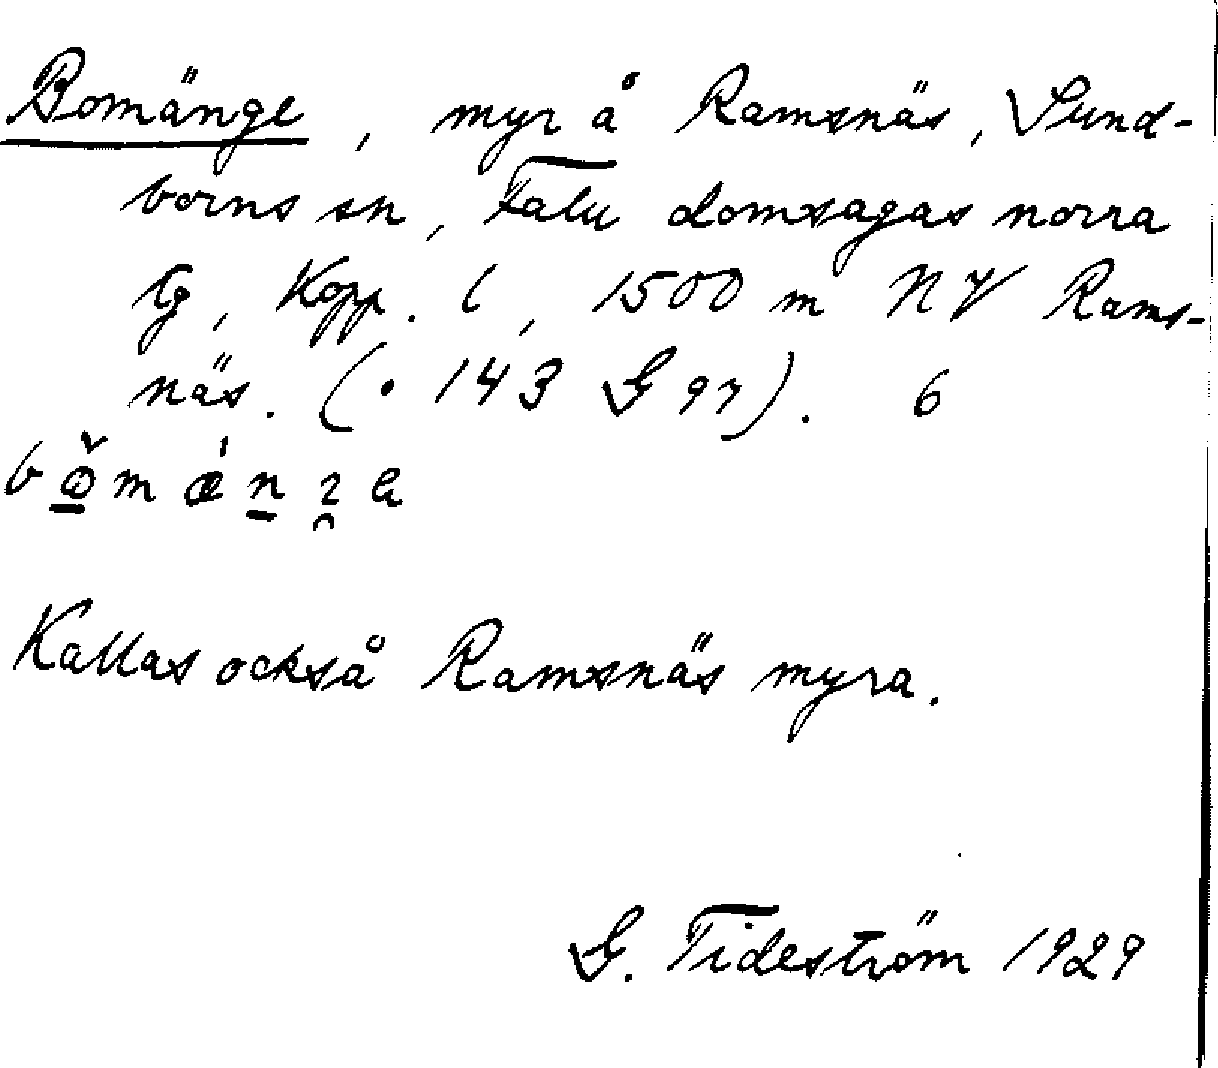 Bomänge, myr å Ramsnäs, Sund-
borns sn, Falu domsagas norra
tg, Kopp. l, 1500 m NV Rams-
näs. (• 143 G 97). 6
Kallas också Ramsnäs myra.
G. Tideström 1929